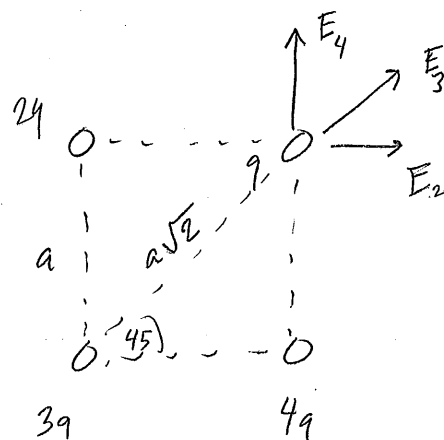 E₄
E₃
2q
q
E₂
a
a√2
45
3q
4q